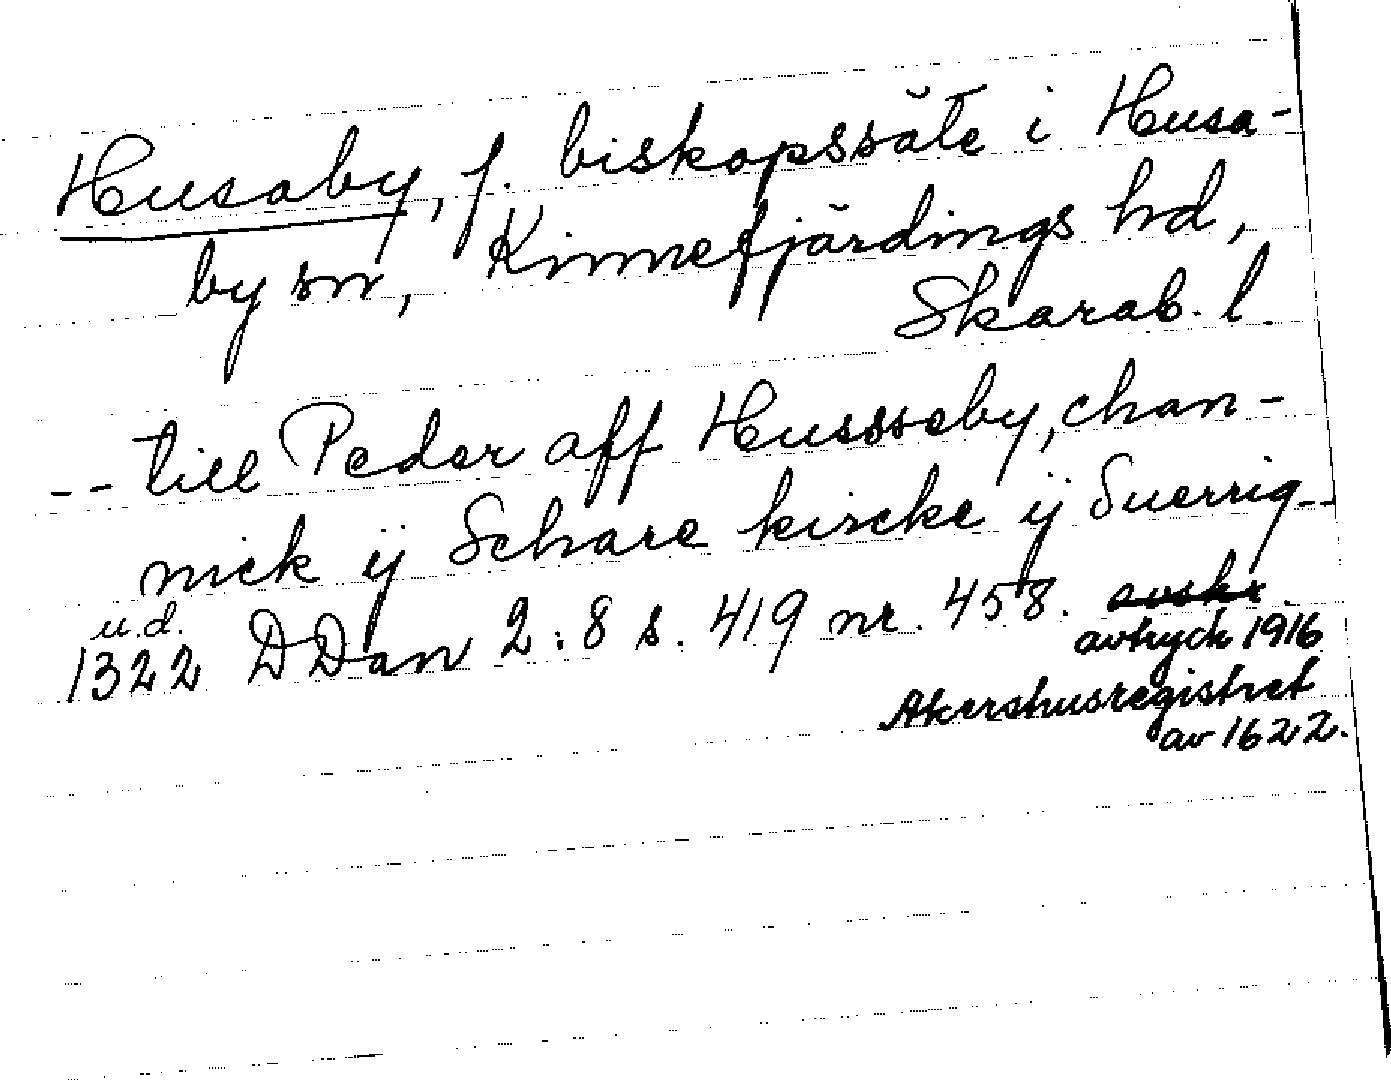 Husaby, f. biskopssäte i Husa-
by sn, Kinnefjärdings hd,
Skarab. l.
-- till Peder aff Hussseby, chan-
nick ij Schare kircke ij Suerrig --
u.d.
1322 DDan 2:8 s. 419 nr. 458. avskr.
avtryck 1916
Akershusregistret
av 1622.